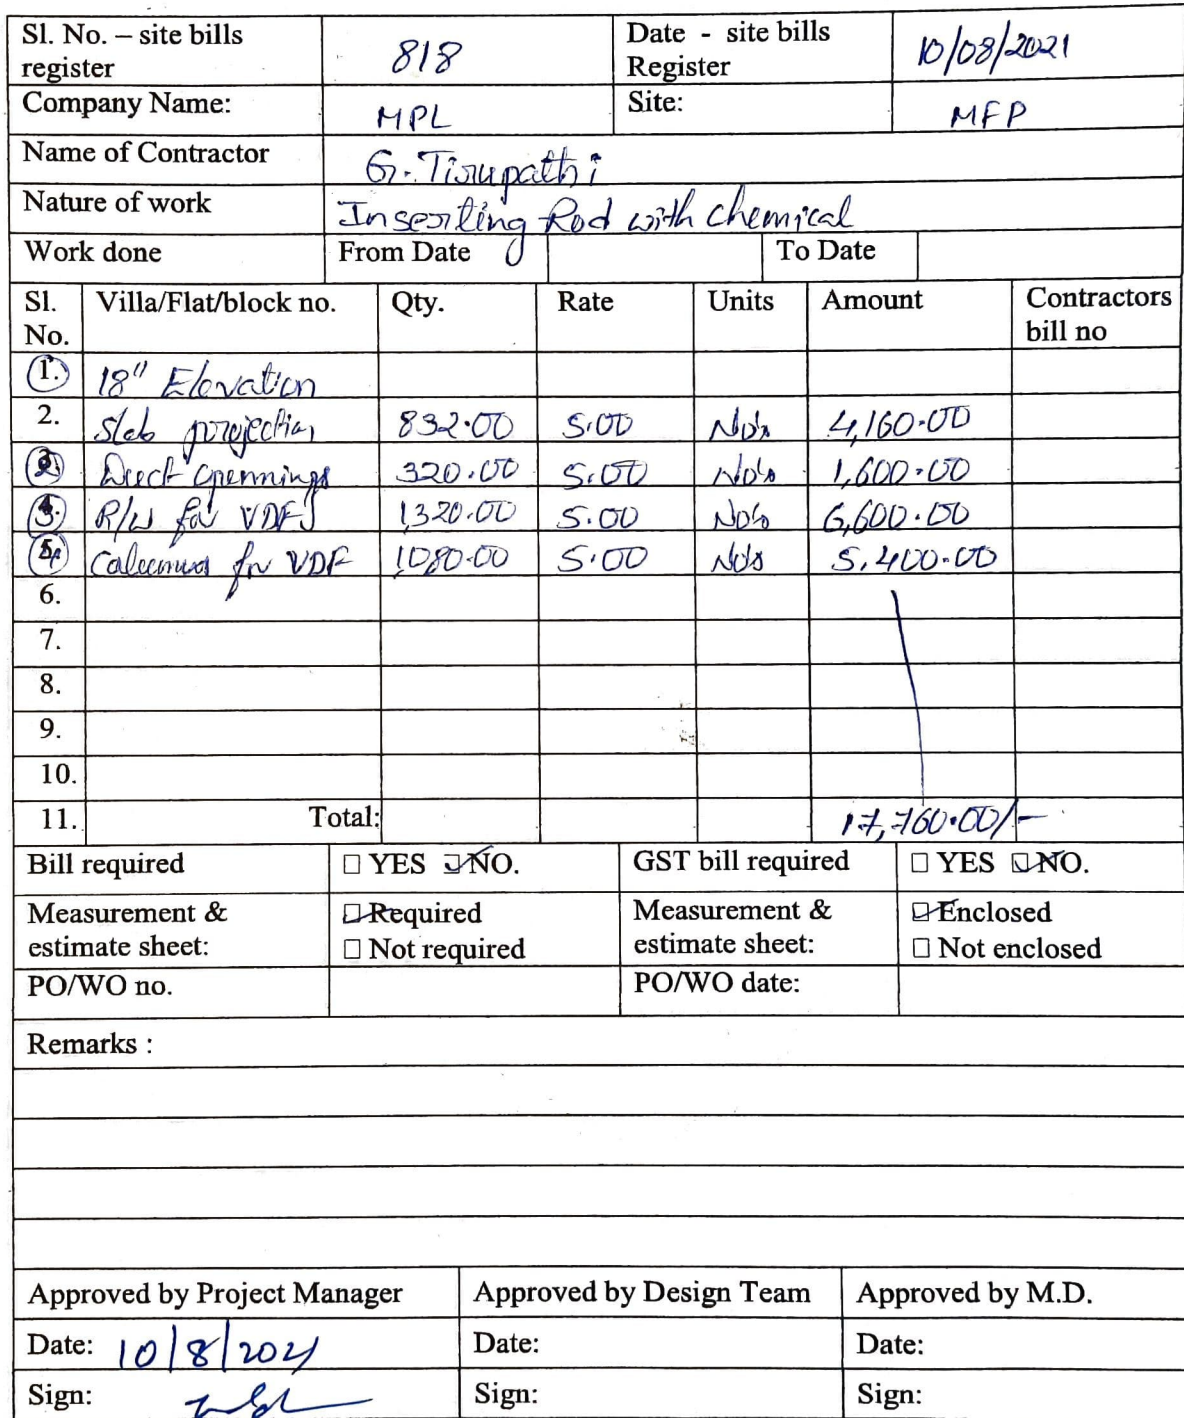 Sl. No. – site bills register 818 Date - site bills Register 10/08/2021
Company Name: MPL Site: MFP
Name of Contractor G. Tirupathi
Nature of work Inserting Rod with chemical
Work done From Date To Date
Sl. No. Villa/Flat/block no. Qty. Rate Units Amount Contractors bill no
1. 18" Elevation
2. Slab projection 832.00 5.00 No's 4,160.00
Duct opennings 320.00 5.00 No's 1,600.00
R/W for VDF 1,320.00 5.00 No's 6,600.00
5. for VDF 1,080.00 5.00 No's 5,400.00
6.
7.
8.
9.
10.
11. Total: 17,760.00/-
Bill required □ YES ☑ NO. GST bill required □ YES ☑ NO.
Measurement & estimate sheet: ☑ Required □ Not required Measurement & estimate sheet: ☑ Enclosed □ Not enclosed
PO/WO no. PO/WO date:
Remarks :
Approved by Project Manager Approved by Design Team Approved by M.D.
Date: 10/8/2021 Date: Date:
Sign: Sign: Sign: